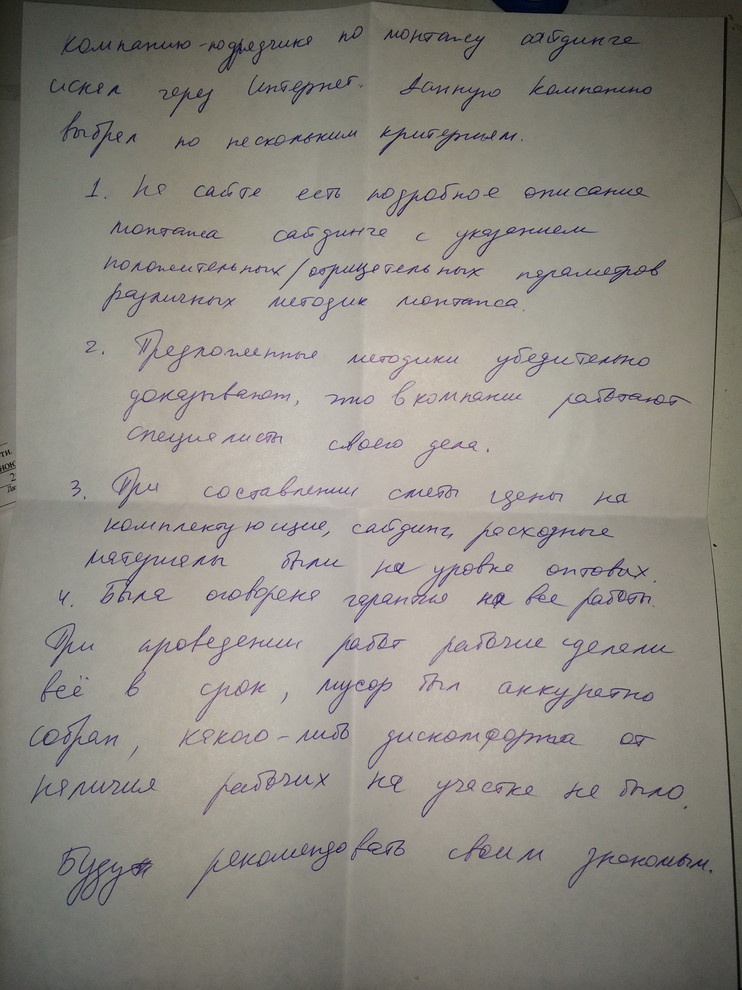 Компанию-подрядчика по монтажу сайдинга
искал через Интернет. Данную компанию
выбрал по нескольким критериям.
1. На сайте есть подробное описание
монтажа сайдинга с указанием
положительных/отрицательных параметров
различных методик монтажа.
2. Предложенные методики убедительно
доказывают, что в компании работают
специалисты своего дела.
3. При составлении сметы цены на
комплектующие, сайдинг, расходные
материалы были на уровне оптовых.
4. Была оговорена гарантия на все работы.
При проведении работ рабочие сделали
всё в срок, мусор был аккуратно
собран, какого-либо дискомфорта от
наличия рабочих на участке не было.
Буду рекомендовать своим знакомым.
ти
2